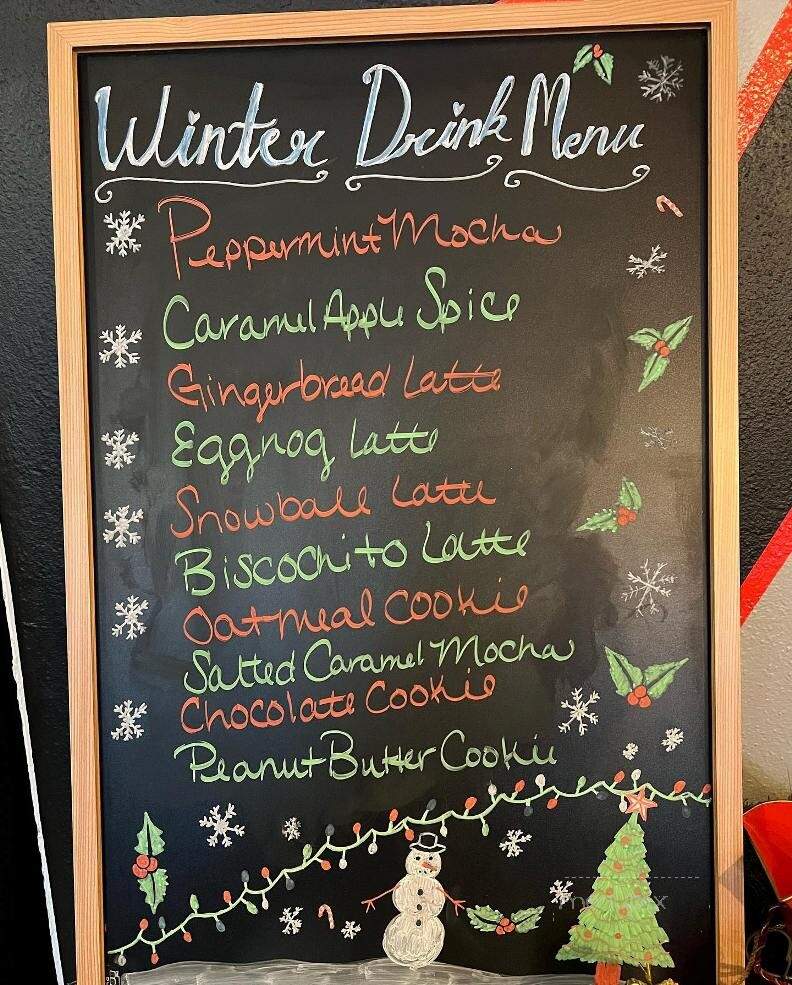 Winter Drink Menu
Peppermint Mocha
Caramel Apple Spice
Gingerbread Latte
Eggnog Latte
Snowball Latte
Biscochito Latte
Oatmeal Cookie
Salted Caramel Mocha
Chocolate Cookie
Peanut Butter Cookie